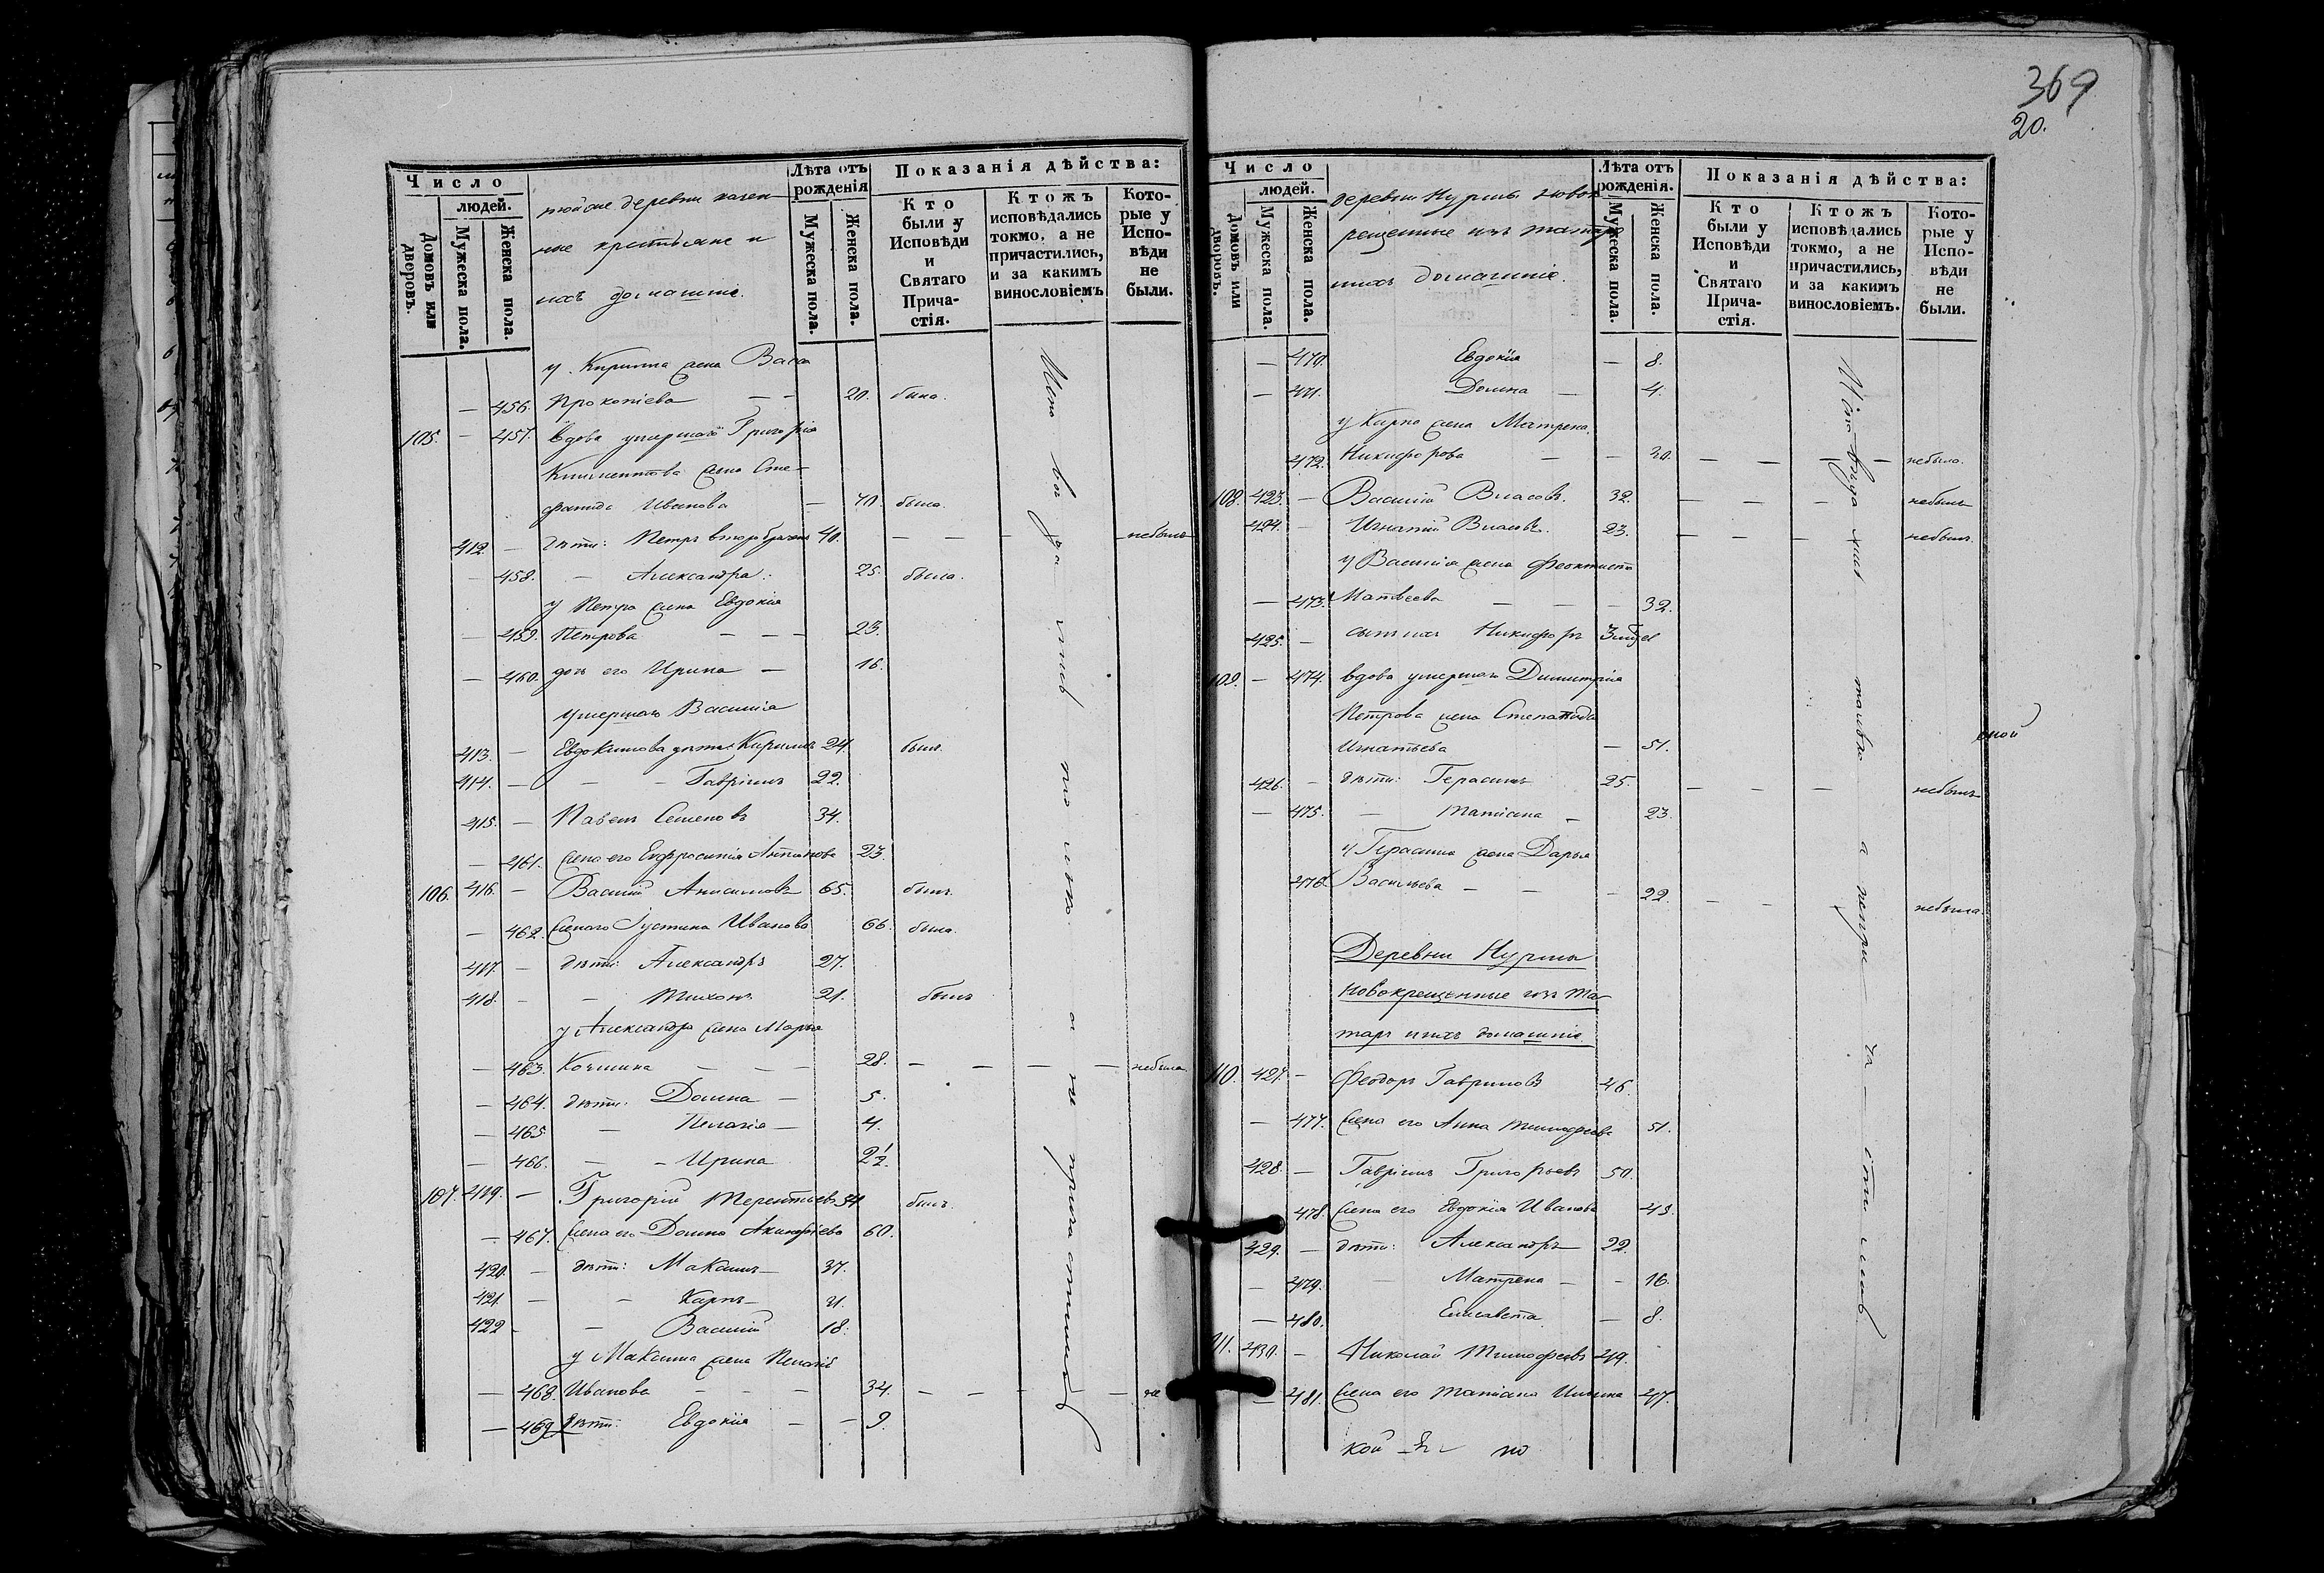 Число
людей.
Домовъ или дворовъ.
Мужеска пола.
Женска пола.
тойже деревни казен-
ные крестьяне и
ихъ домашніе.
Лѣта отъ рожденія
Мужеска пола.
Женска пола.
Показанія дѣйства:
Кто были у Исповѣди и Святаго Причастія.
Ктожъ исповѣдались токмо, а не причастились, и за какимъ винословіемъ
Которые у Исповѣди не были.
у Кирилла жена Васса
— 456. Прокопіева — — 20. была.
105. — 457. вдова умершаго Григорія
Климентова жена Сте-
фанида Иванова — 70. была.
412. — дѣти: Петръ второбрачный 40. — — — небылъ
— 458. — Александра: 25. была.
у Петра жена Евдокія
— 459. Петрова — — — 23.
— 460. дочь его Ирина — 16.
умершаго Василія
413. — Евдокимова дѣти: Кириллъ 24. былъ.
414. — — — Гавріилъ 22.
415. — Павелъ Семеновъ 34.
— 461. жена его Евфросинія Антонова 23.
106. 416. — Василій Анисимовъ 65. былъ.
— 462. жена его Іустина Иванова 66. была.
417. — дѣти: Александръ 27.
418. — — Тихонъ 21. былъ
у Александра жена Марья
— 463. Козмина — — — 28. — — — — небыла.
— 464. дѣти: Домна — 5.
— 465 — Пелагія — 4.
— 466. — — Ирина 2½.
107. 419. — Григорій Терентьевъ 54 былъ.
— 467. жена его Домна Акинфіева 60.
420. — дѣти: Максимъ — 37.
421. — — Карпъ — 21.
422 — — Василій 18.
у Максима жена Пелагія
— 468. Иванова — — — 34. — — — — не
— 469. дѣти: Евдокія — — 9.
а не причастились
369
20.
Число
людей.
Домовъ или дворовъ.
Мужеска пола.
Женска пола.
деревни Нурмы новок-
рещенные изъ татаръ
ихъ домашніе.
Лѣта отъ рожденія.
Мужеска пола.
Женска пола.
Показанія дѣйства:
Кто были у Исповѣди и Святаго Причастія.
Ктожъ исповѣдались токмо, а не причастились, и за какимъ винословіемъ.
Которые у Исповѣди не были.
— 470. Евдокія — 8.
— 471. Домна — 4.
у Карпа жена Матрена
472. Никифорова — — 20. — — — — небыла.
108. 423. — Василій Власовъ. 32. — — — небылъ
424. — Игнатій Власовъ. 23. — — — небылъ.
у Василія жена Феоктиста
— 473. Матвеева — — — 32.
425. — сынъ ихъ Никифоръ
109. — 474. вдова умершаго Димитрія
Петрова жена Степанида
Игнатьева — 51.
426. — дѣти: Герасимъ 25. — — — небылъ
— 475. — Татіана — 23.
у Герасима жена Дарья
476. Васильева — — — 22. — — небыла.
Деревни Нурмы
новокрещенные изъ та-
таръ и ихъ домашніе
110. 427. — Феодоръ Гавриловъ 46.
— 477. жена его Анна Тимофеева 51.
428. — Гавріилъ Григорьевъ 50.
478. жена его Евдокія Иванова 43.
429. — дѣти: Александръ 22.
— 479. — Матрена — — 16.
— 480. Елисавета — 8.
111. 430. — Николай Тимофеевъ 49.
— 481. жена его Татіана Ильина 47.